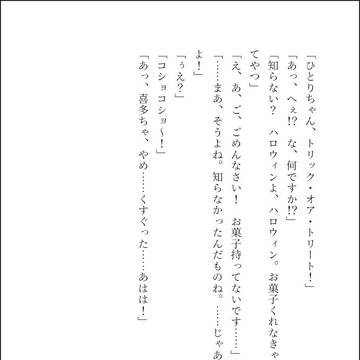 「ひとりちゃん、トリック・オア・トリート！」
「あっ、へぇ!?　な、何ですか!?」
「知らない？　ハロウィンよ、ハロウィン。お菓子くれなきゃ
てやつ」
「え、あ、ご、ごめんなさい！　お菓子持ってないです……」
「……まあ、そうよね。知らなかったんだものね。……じゃあ
よ！」
「うえ？」
「コショコショ〜！」
「あっ、喜多ちゃ、やめ……くすぐった……あはは！」